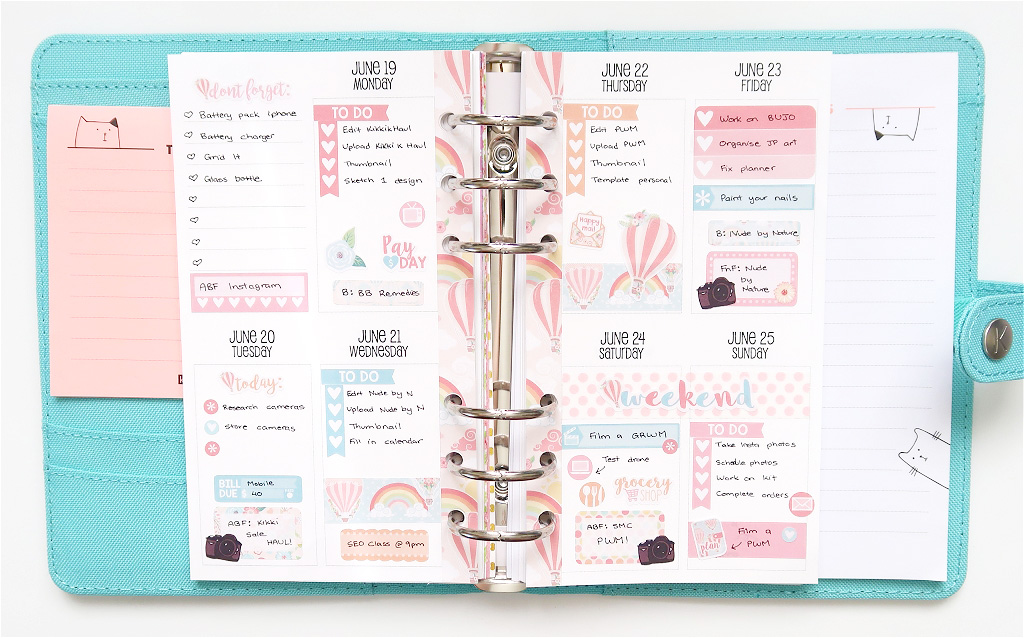 dont forget:
Battery pack iphone
Battery charger
Grid It
Glass bottle
ABF Instagram
JUNE 19
MONDAY
TO DO
Edit KikkiKHaul
Upload Kikki K Haul
Thumbnail
Sketch 1 design
Pay
DAY
B: BB Remedies
JUNE 20
TUESDAY
today:
Research cameras
store cameras
BILL Mobile
DUE $ 40
ABF: Kikki
Sale
HAUL!
JUNE 21
WEDNESDAY
TO DO
Edit Nude by N
Upload Nude by N
Thumbnail
Fill in calendar
SEO Class @ 9pm
JUNE 22
THURSDAY
TO DO
Edit PWM
Upload PWM
Thumbnail
Template personal
Happy
mail
JUNE 23
FRIDAY
Work on BUJO
Organise JP art
Fix planner
Paint your nails
B: Nude by Nature
FnF: Nude
by
Nature
JUNE 24
SATURDAY
weekend
Film a GRWM
Test drone
grocery
SHOP
ABF: SMC
PWM!
JUNE 25
SUNDAY
TO DO
Take Insta photos
Schedule photos
Work on kit
Complete orders
plan
Film a
PWM
K